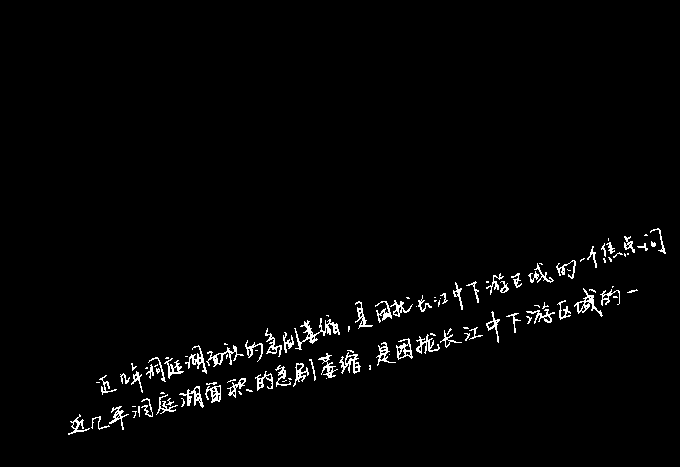 近几年洞庭湖面积的急剧萎缩，是困扰长江中下游区域的一个焦点问
近几年洞庭湖面积的急剧萎缩，是困扰长江中下游区域的一